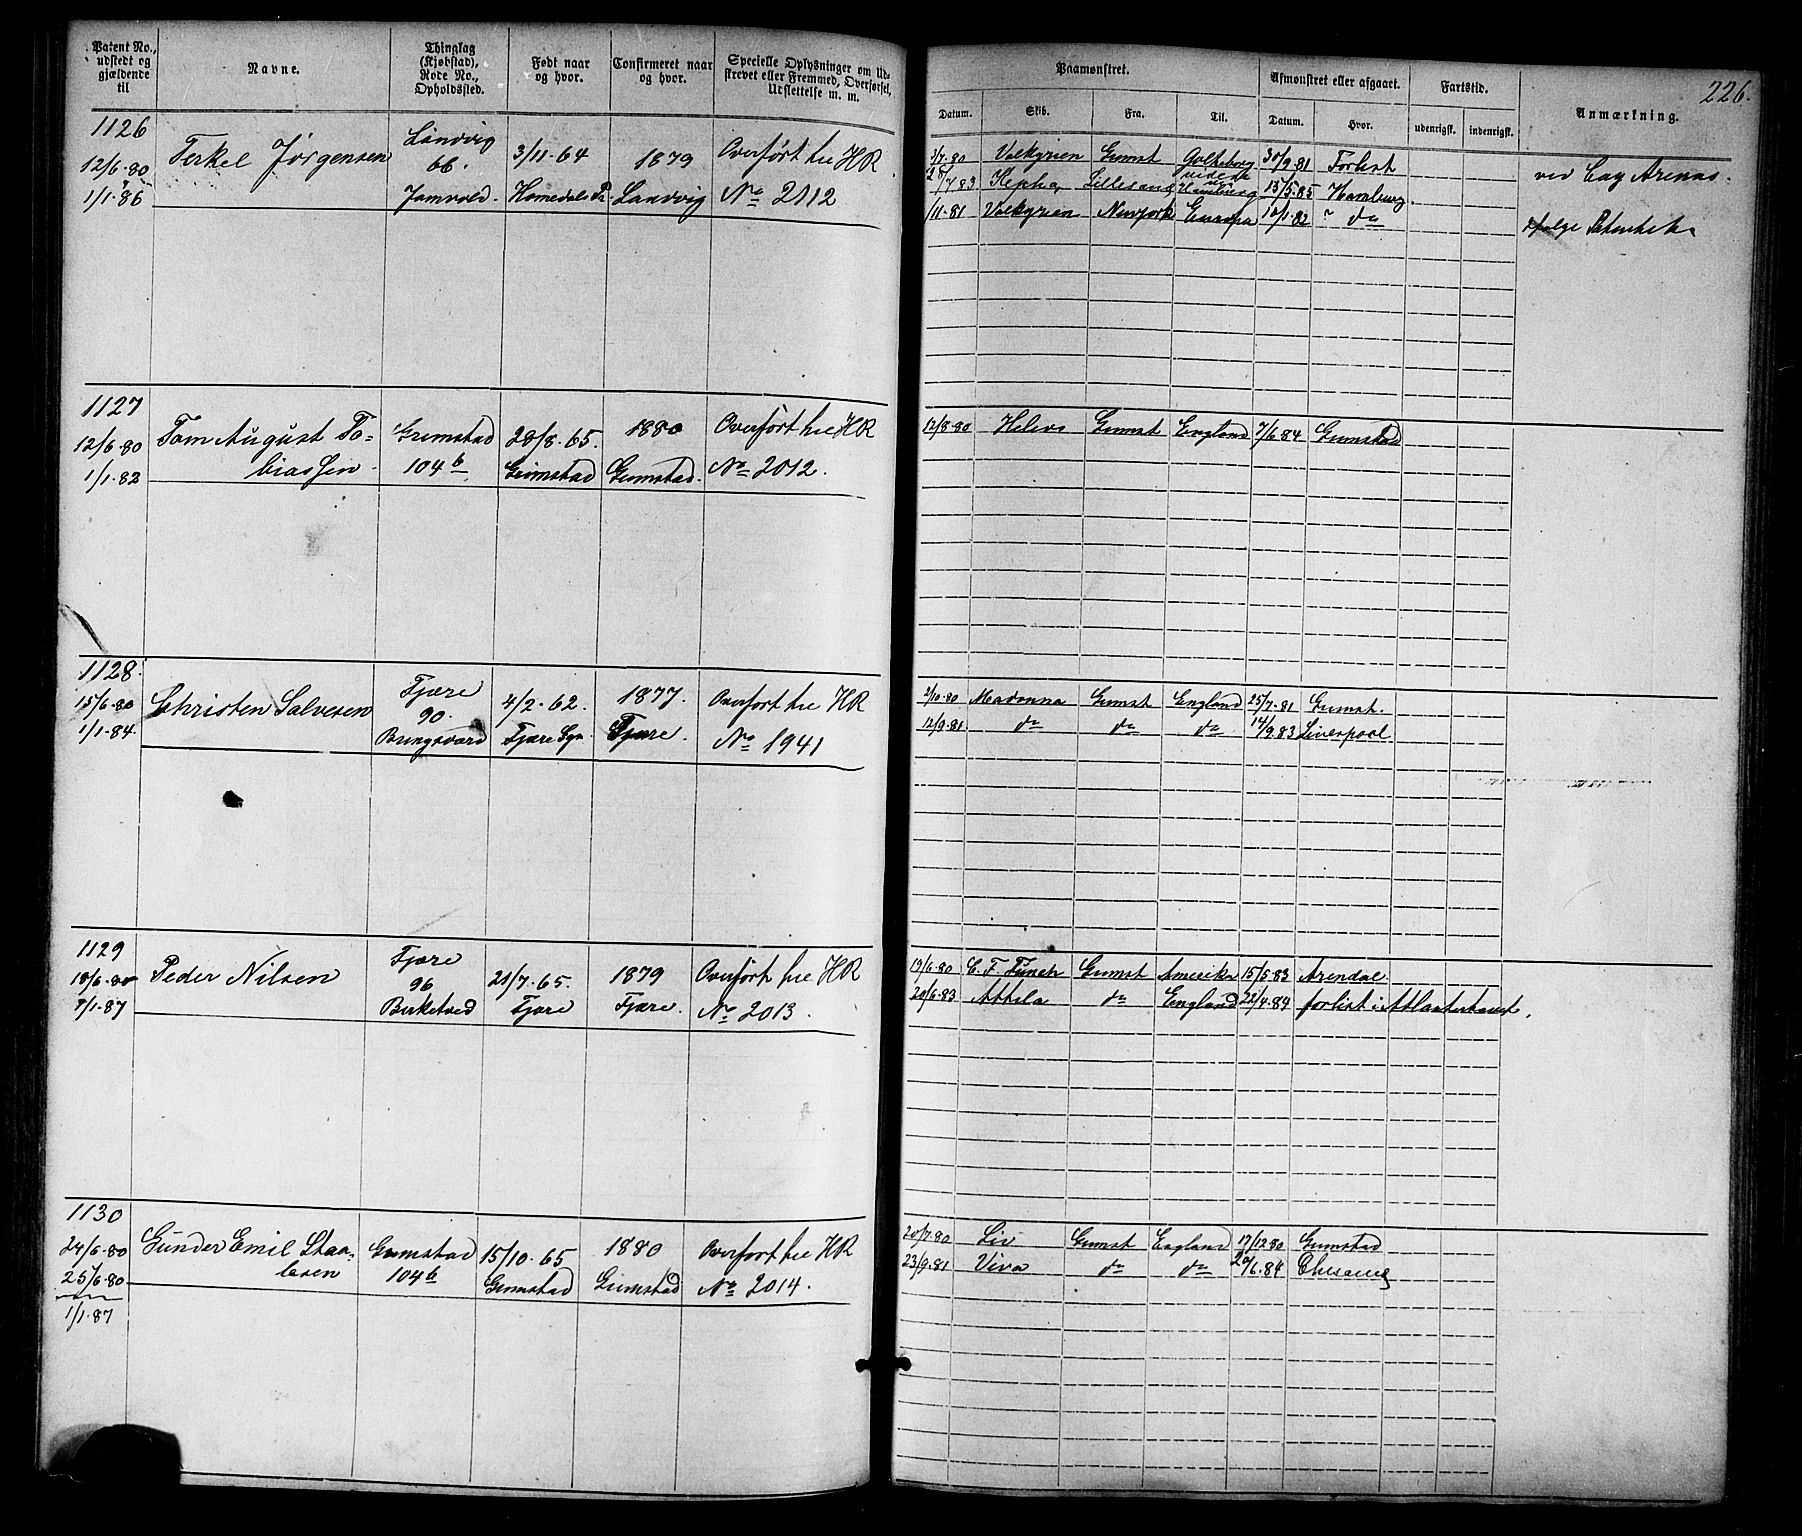 226.
Patent No., udstedt og gjældende til
Navne.
Thinglag (Kjøbstad), Rode No., Opholdssted.
Født naar og hvor.
Confirmeret naar og hvor.
Specielle Oplysninger om Udskrevet eller Fremmed, Overførsel, Udslettelse m. m.
Paamønstret.
Afmønstret eller afgaaet.
Fartstid.
Anmærkning.
Datum. Skib. Fra. Til. Datum. Hvor. udenrigsk. indenrigsk.
1126
12/6-80
1/1-86
Terkel Jörgensen
Landvig
66.
3/11-64
Homedals Pr.
1879
Landvig
Overført til HR
No 2112
3/7-80 Valkyrien Grimst Gotheborg 30/9-81 Forlist
ved Cay Arenas.
/7 83 Kepha Lillesand Hamburg 15/5-85 Hamburg.
/11-81 Valkyrien Newyork Europa 10/1-82 " do
ifølge Patentet
1127
12/6-80
1/1-82
Tom August To-
biassen
Grimstad
104 b
28/8-65.
Grimstad
1880
Grimstad.
Overført til HR
No 2012.
12/8-80 Helios Grimst England 7/6 84 Grimstad
1128.
15/6-80
1/1-84.
Christen Salvesen
Fjære
90.
Bringsværd
4/2-62.
Fjære Sgn
1877.
Fjære.
Overført til HR
No 1941
2/10-80 Madonna Grimst England 25/7-81 Grimst.
12/9-81 do do do 14/9 83 Liverpool
1129
18/6-80
1/1-87
Peder Nilsen
Fjære
96
Birketved
21/7-65.
Fjære
1879
Fjære.
Overført til HR
No 2013.
19/6-80 C. F. Funch Grimst Amerika 15/5 83 Arendal.
20/6-83 Attila do England 22/4-84 forlist i Atlanterhavet.
1130
24/6-80
25/6-80
1/1-87
Gunder Emil Staa-
lesen
Grimstad
104 b
15/10-65
Grimstad
1880
Grimstad
Overført til HR
No 2014.
20/7-80 Liv Grimst England 17/12 80 Grimstad
23/9-81 Viva do do 20/6-84